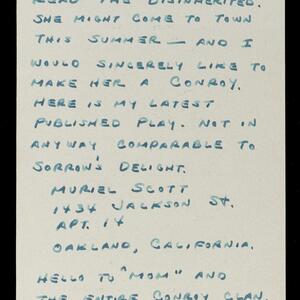 READ THE DISINHERITED.
SHE MIGHT COME TO TOWN
THIS SUMMER — AND I
WOULD SINCERELY LIKE TO
MAKE HER A CONROY.
HERE IS MY LATEST
PUBLISHED PLAY. NOT IN
ANYWAY COMPARABLE TO
SORROW'S DELIGHT.
MURIEL SCOTT
1434 JACKSON ST.
APT. 14
OAKLAND, CALIFORNIA.
HELLO TO "MOM" AND
THE ENTIRE CONROY CLAN.